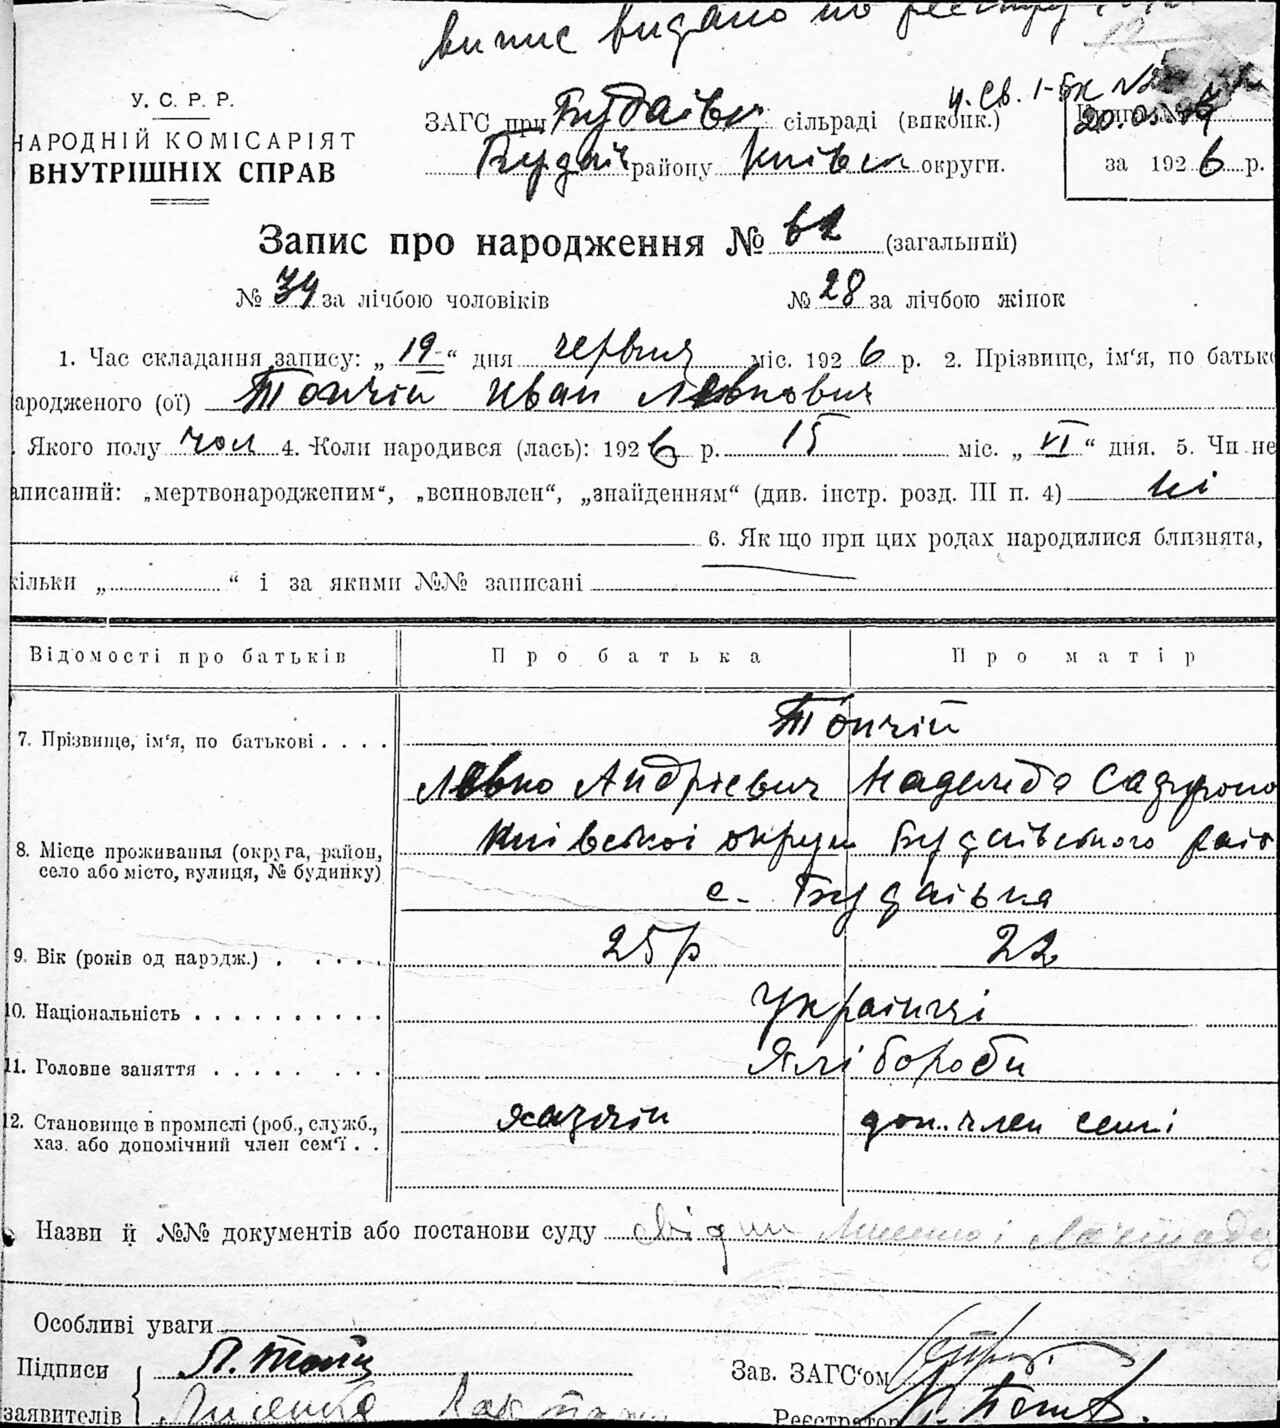 випис видано по реєстру
У. С. Р. Р.
НАРОДНІЙ КОМІСАРІЯТ
ВНУТРІШНІХ СПРАВ
ЗАГС при Будаївці сільраді (виконк.)
20.
района Київськ округи.
району
за 1926 р.
Запис про народження № 62 (загальний)
№ 34 за лічбою чоловіків № 28 за лічбою жінок
1. Час складання запису: „19“ дня червня міс. 1926 р. 2. Прізвище, ім‘я, по батьк
ародженого (ої) Тончій Иван Левкович
Якого полу чол 4. Коли народився (лась): 1926 р. 15 міс. „VI“ дня. 5. Чи не
аписаний: „мертвонародженим“, „всиновлен“, „знайденням“ (див. інстр. розд. III п. 4) ні
6. Якщо при цих родах народилися близнята,
кільки „ “ і за якими №№ записані
Відомості про батьків Про батька Про матір
7. Прізвище, ім‘я, по батькові . . . . Тончій
Левко Андрієвич Надежда Сафроно
8. Місце проживання (округа, район, село або місто, вулиця, № будинку) Київської округи Будаївського рай
с. Будаївка
9. Вік (років од народж.) . . . . . 25 р 22
10. Національність . . . . . . . . . . Українці
11. Головне заняття . . . . . . . . Хліброби
12. Становище в промислі (роб., служб., хазяїн
хаз. або допомічний член сем‘ї . . доп. член семї
Назви й №№ документів або постанови суду
Особливі уваги
Підписи Зав. ЗАГС‘ом
заявителів Реєстратор